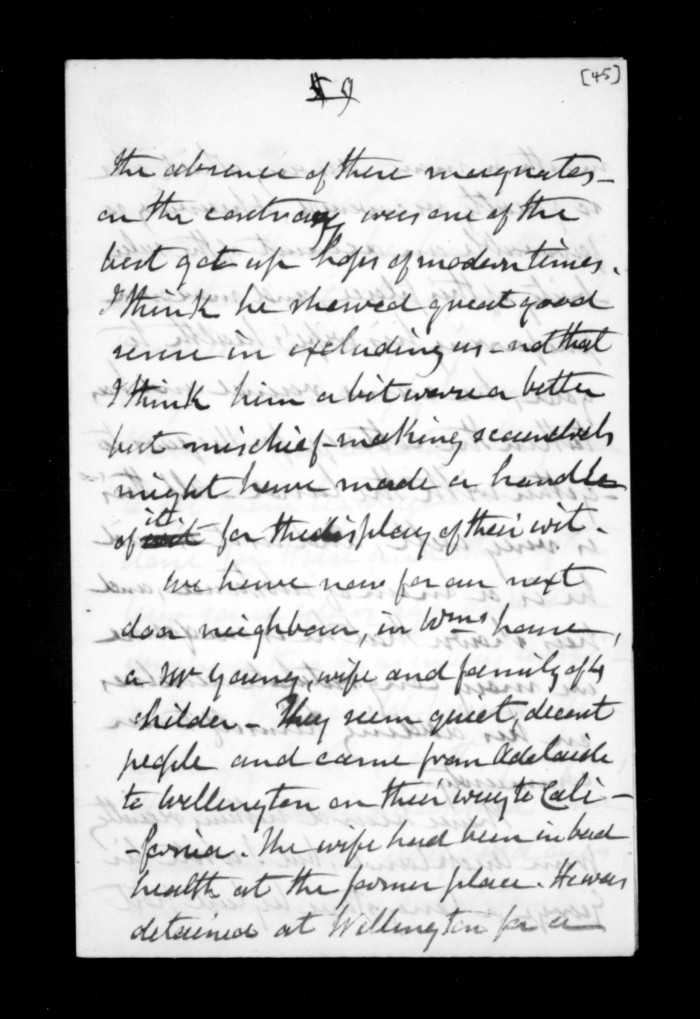 [45]
the absence of these magnates -
on the contrary was one of the
best got up hops of modern times.
I think he shewed great good
sense in excluding us - not that
I think him a bit worse or better
but mischief-making scoundrels
might have made a handle
of it for the display of their wit.
We have now for our next
door neighbour, in Wms house,
a Mr Young, wife and family of 4
childer - They seem quiet, decent
people and came from Adelaide
to Wellington on their way to Cali-
-fornia. The wife had been in bad
health at the former place. He was
detained at Wellington for a